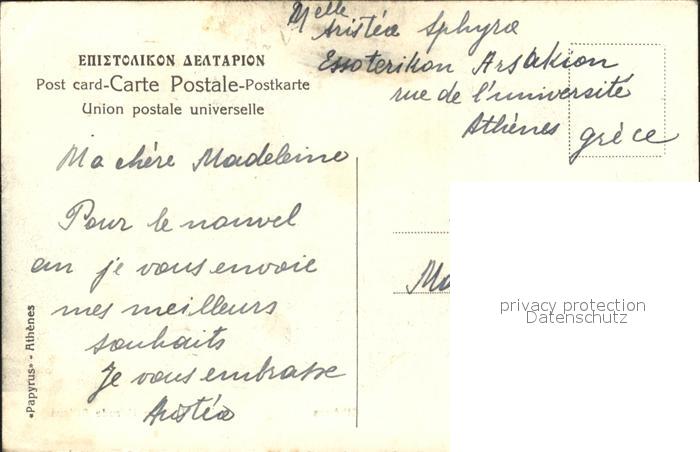 Melle
Aristéa Sphyra
Essoterikon Arsakion
rue de l'université
Athènes grèce
ΕΠΙΣΤΟΛΙΚΟΝ ΔΕΛΤΑΡΙΟΝ
Post card-Carte Postale-Postkarte
Union postale universelle
Ma chére Madeleine
Pour le nouvel
an je vous envoie
mes meilleurs
souhaits
Je vous embrasse
Aristéa
«Papyrus» - Athènes
privacy protection
Datenschutz